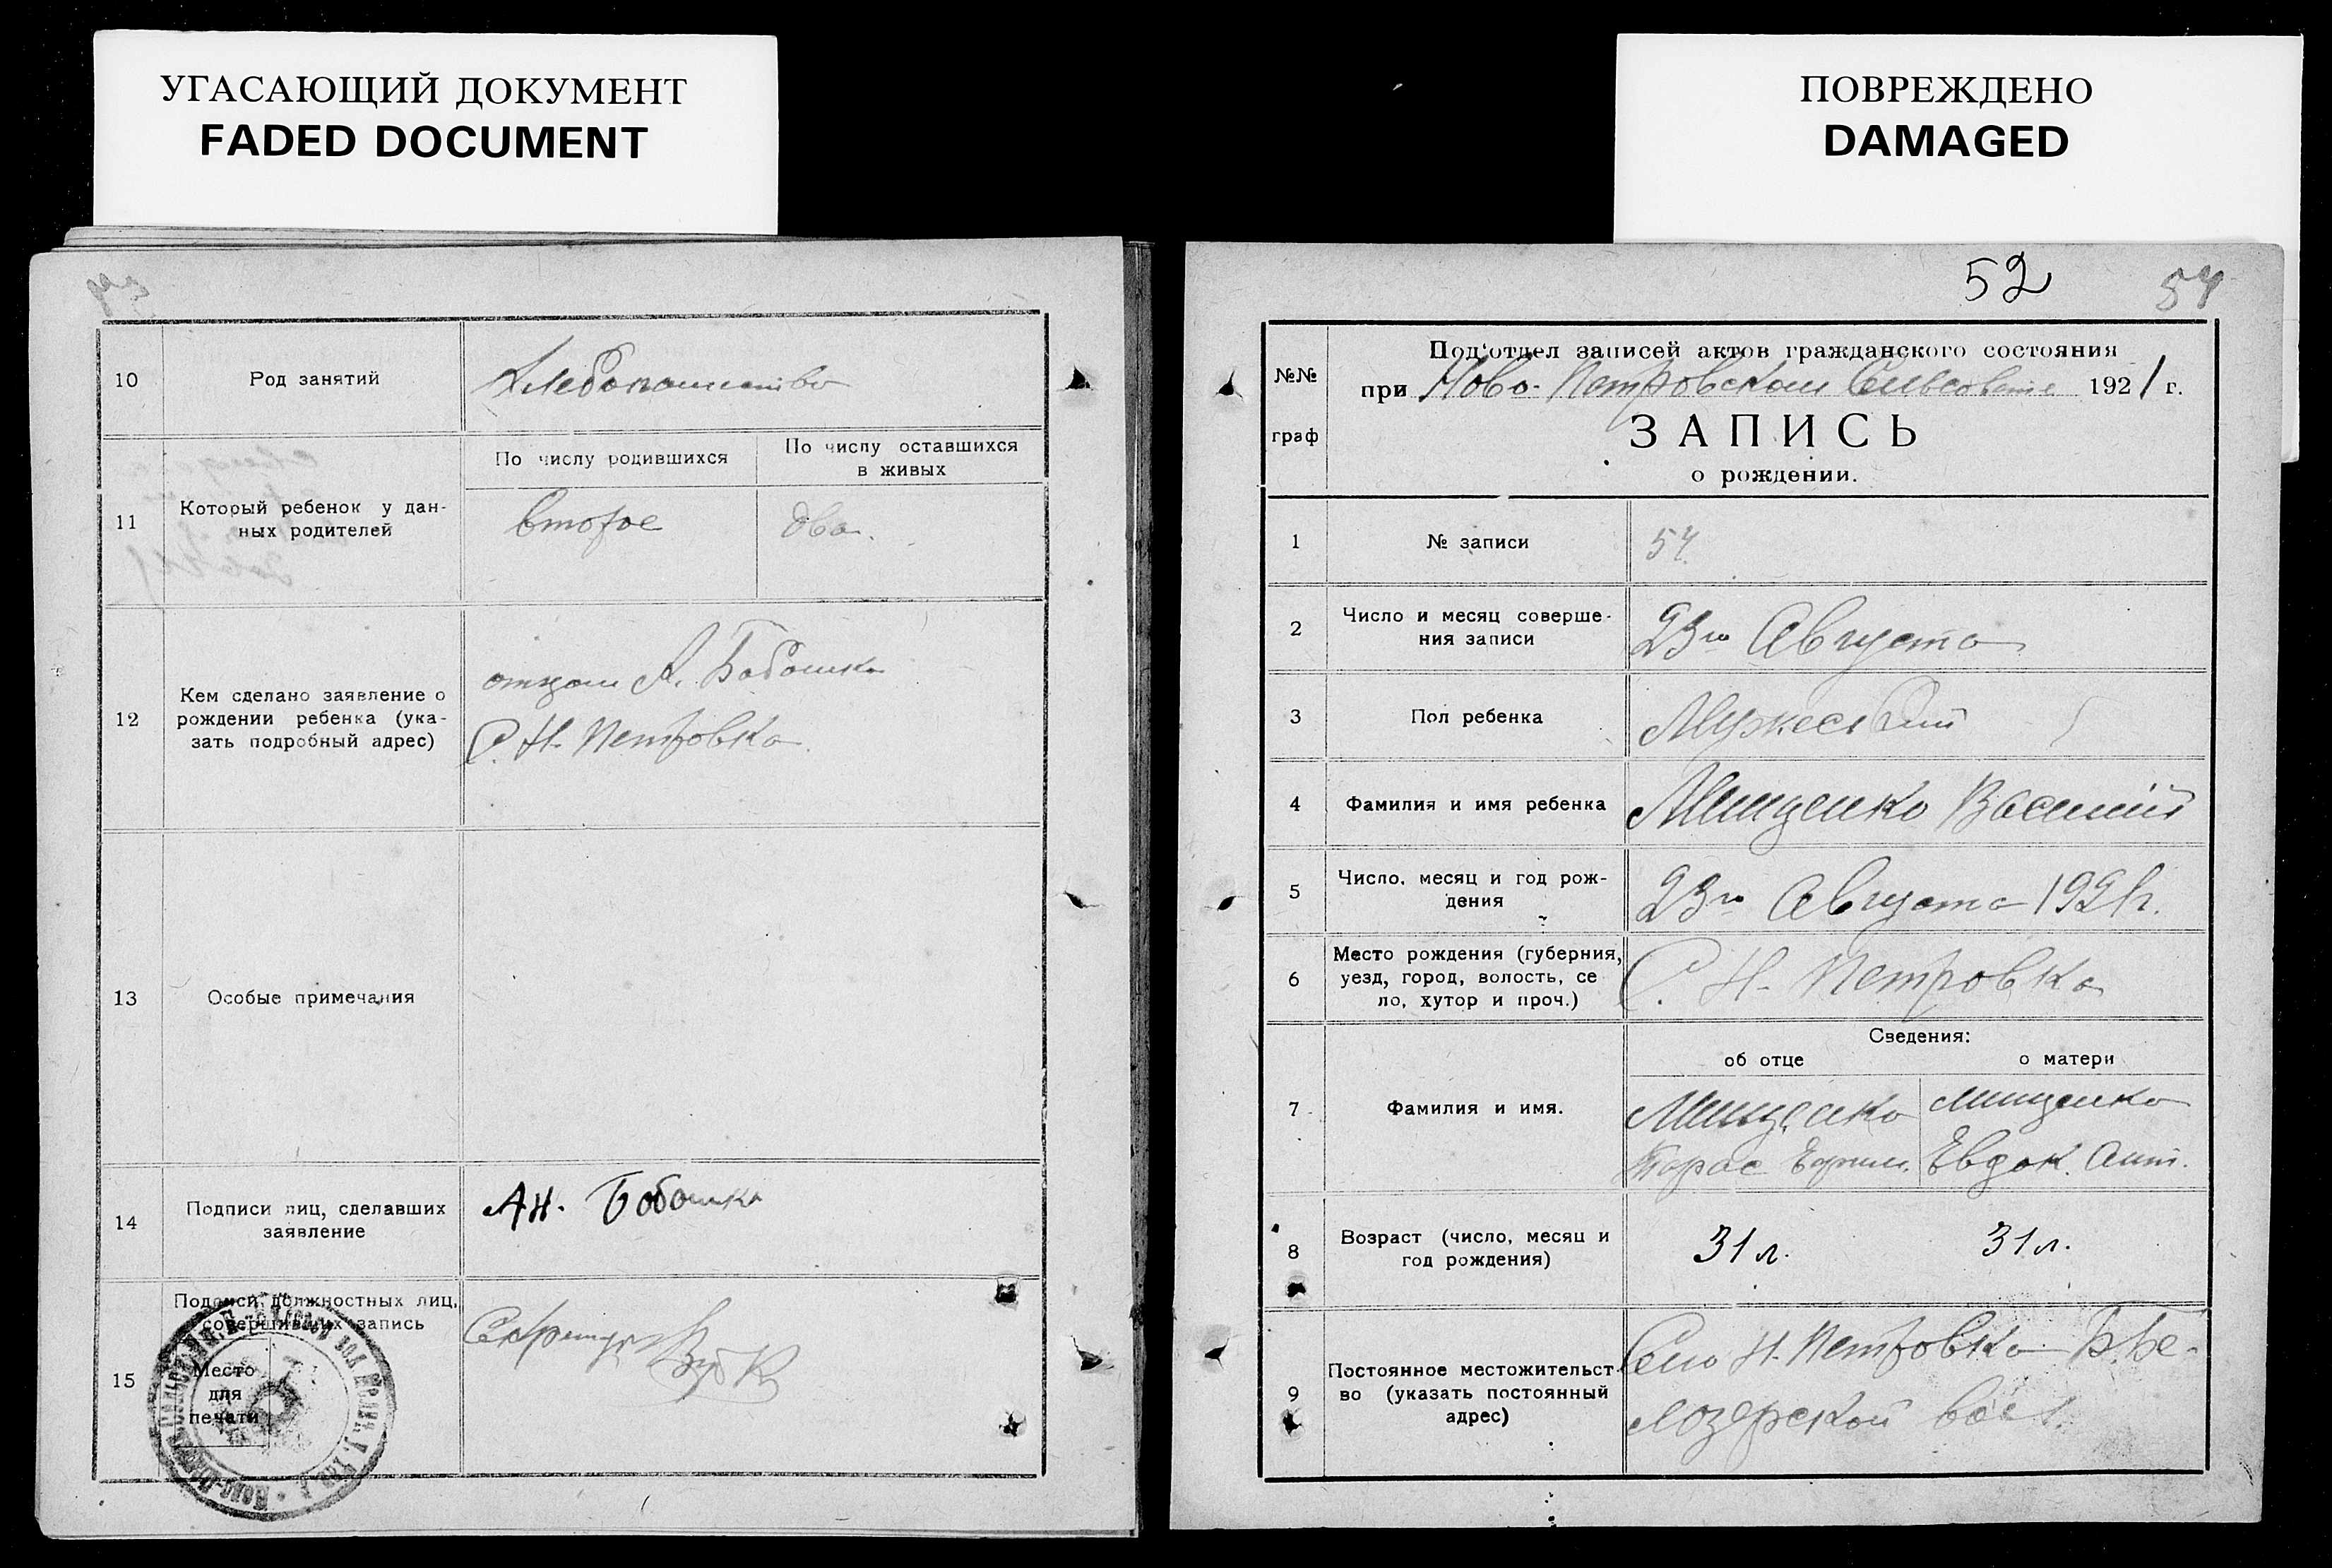 УГАСАЮЩИЙ ДОКУМЕНТ
FADED DOCUMENT
10
Род занятий
Хлебопашество
11
Который ребенок у дан-
ных родителей
По числу родившихся
второе
По числу оставшихся
в живых
два.
12
Кем сделано заявление о
рождении ребенка (ука-
зать подробный адрес)
отцом А. Бабошка
С. Н-Петровка.
13
Особые примечания
14
Подписи лиц, сделавших
заявление
Ан. Бабошка
15
Подписи должностных лиц,
совершивших запись
Место
для
печати
ПОВРЕЖДЕНО
DAMAGED
52
54
№№
граф
Под'отдел записей актов гражданского состояния
при Ново-Петровском Сельсовете 1921 г.
ЗАПИСЬ
о рождении.
1
№ записи
54
2
Число и месяц соверше-
ния записи
23го Августа
3
Пол ребенка
Мужеский
4
Фамилия и имя ребенка
Мищенко Василий
5
Число, месяц и год рож-
дения
23го Августа 1921г.
6
Место рождения (губерния,
уезд, город, волость, се
ло, хутор и проч.)
С. Н-Петровка
Сведения:
об отце
о матери
7
Фамилия и имя.
Мищенко
Тарас Ефим.
Мищенко
Евдок. Ант.
8
Возраст (число, месяц и
год рождения)
31 л.
31 л.
9
Постоянное местожительст-
во (указать постоянный
адрес)
Село Н-Петровка Б.Бе-
лозерской вол.